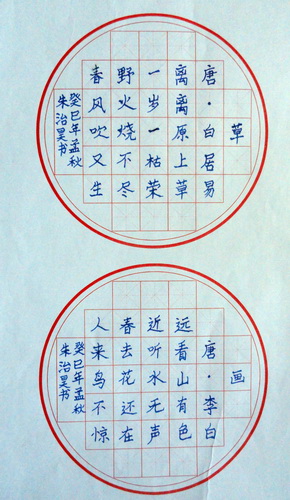 草
唐·白居易
离离原上草
一岁一枯荣
野火烧不尽
春风吹又生
癸巳年孟秋
朱治昊书
画
唐·李白
远看山有色
近听水无声
春去花还在
人来鸟不惊
癸巳年孟秋
朱治昊书